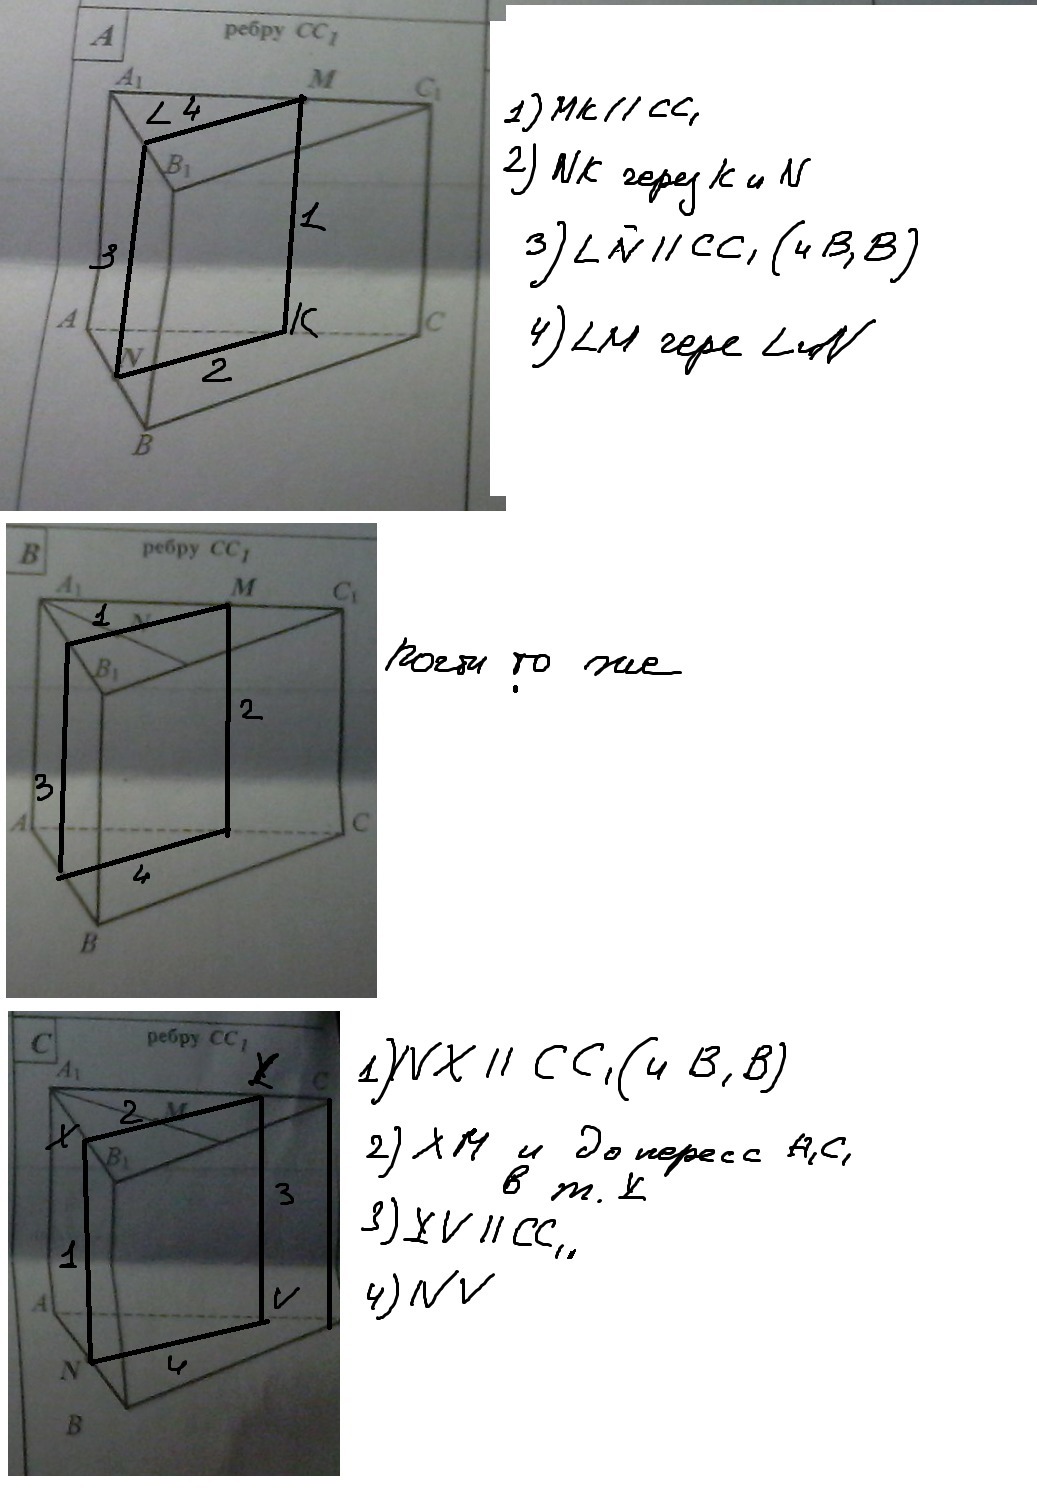 A
ребру CC1
A1
M
C1
L
4
B1
3
1
A
K
C
N
2
B
1) MK // CC1
2) NK через K и N
3) LN // CC1 (и B1B)
4) LM чере L и N
B
ребру CC1
A1
M
C1
1
N
B1
2
3
A
C
4
B
Почти то же
C
ребру CC1
A1
X
2
M
C
B1
3
1
A
V
N
4
B
1) NX // CC1 (и B1B)
2) XM и до пересс A1C1
в т. Y
3) YV // CC1
4) NV